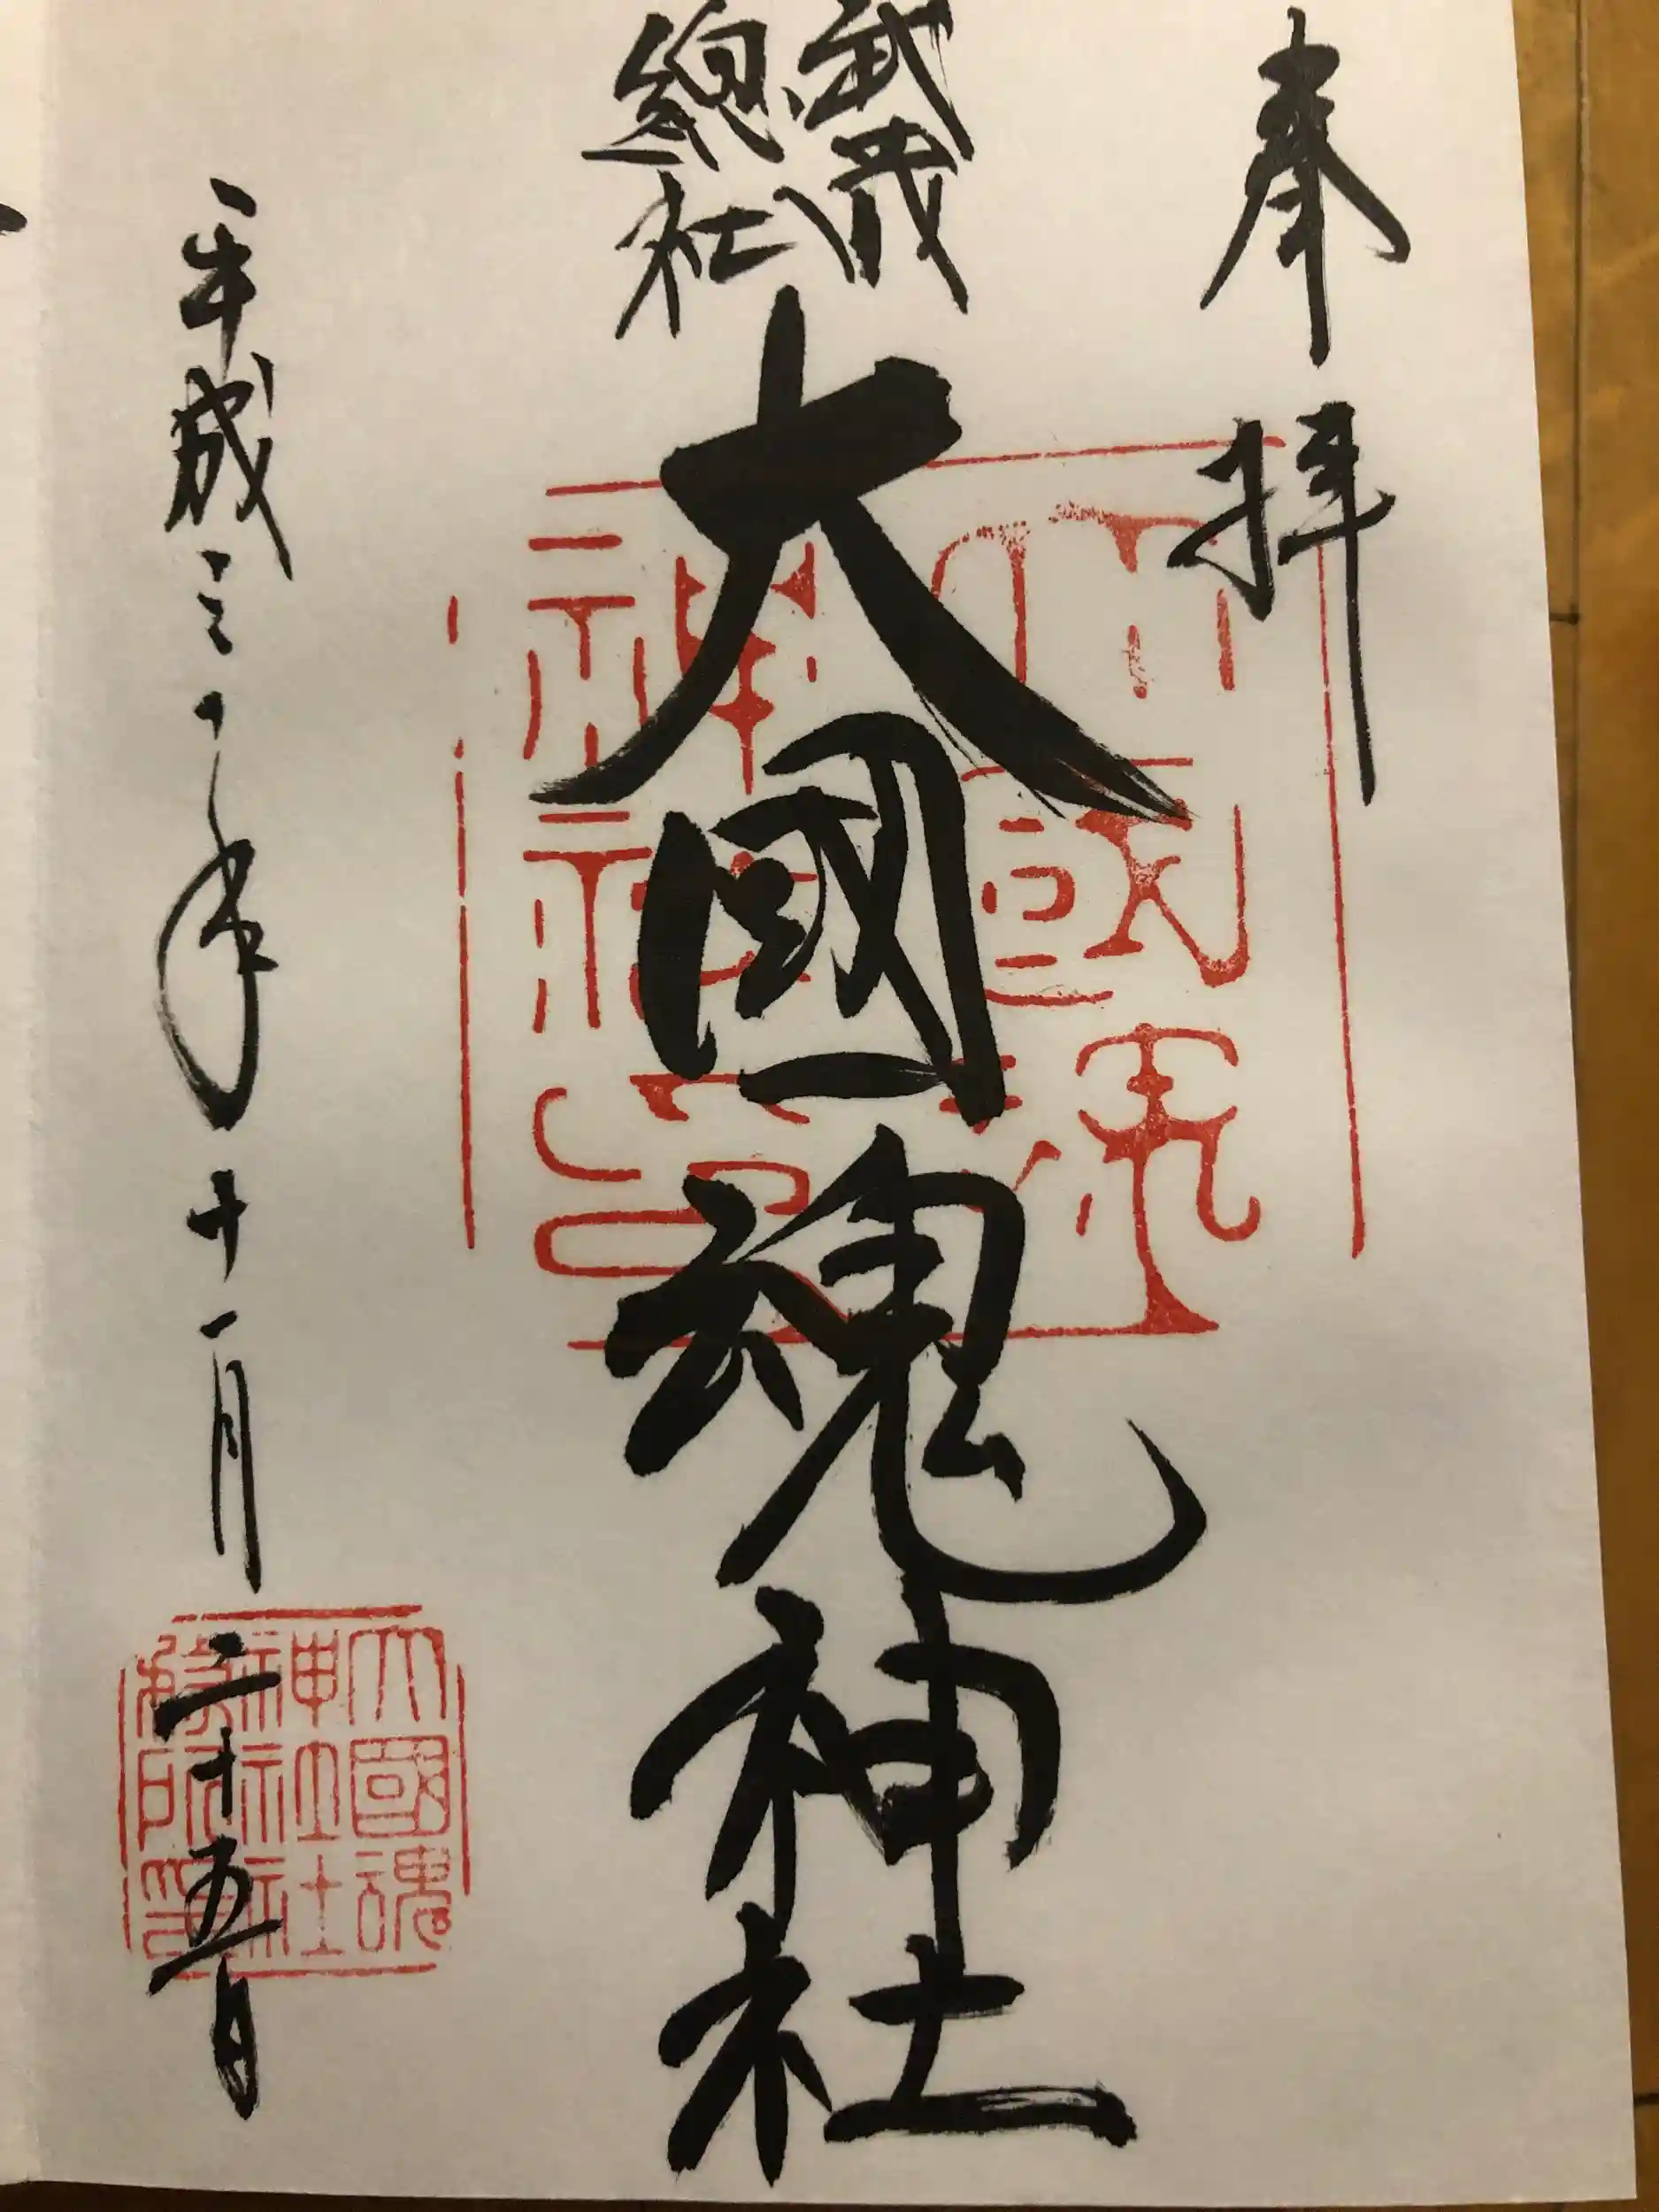 奉拝
武蔵
總社
大國魂神社
平成三十年十一月二十五日
大國魂
神社印
大國魂
神社社
務所印